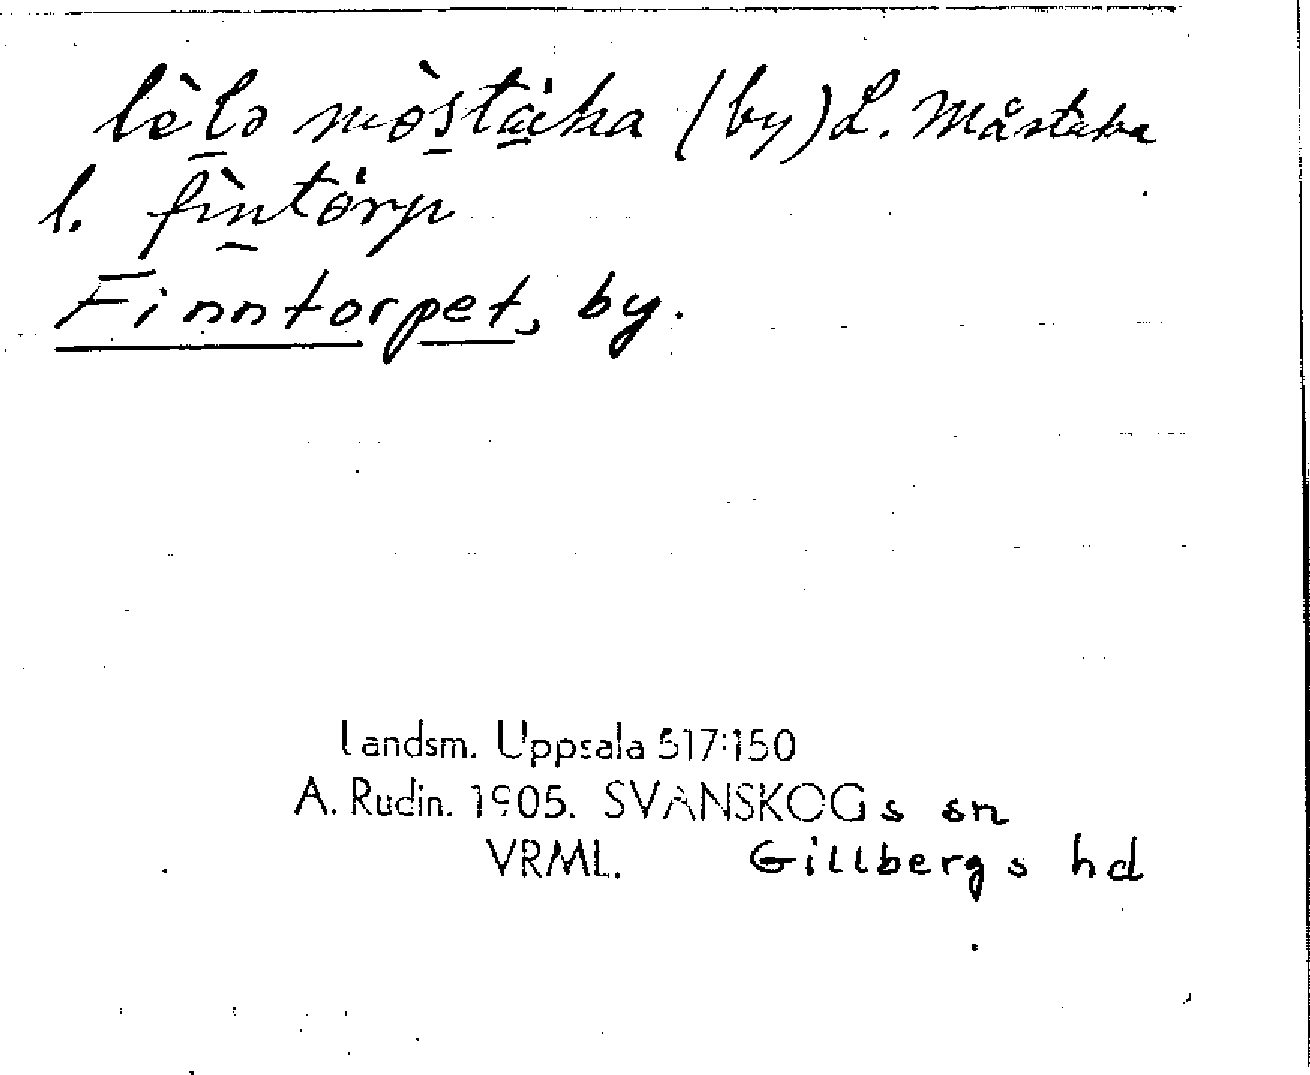 lèlə mòstȧka (by) L. Måstaka
l. fìntȯrp
Finntorpet, by.
Landsm. Uppsala 517:150
A. Rudin. 1905. SVANSKOGs sn
VRML. Gillbergs hd